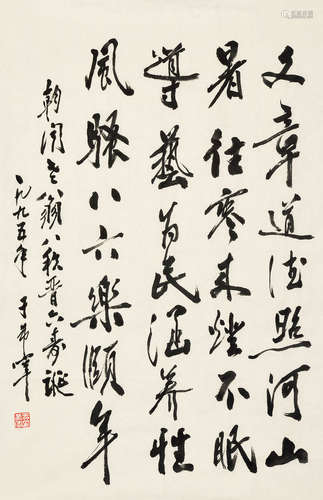 文章道德照河山
暑往寒来灯不眠
导艺为民涵养性
风骚八六乐颐年
朝闻老翁八秩晋六寿诞
一九九五年 于希宁